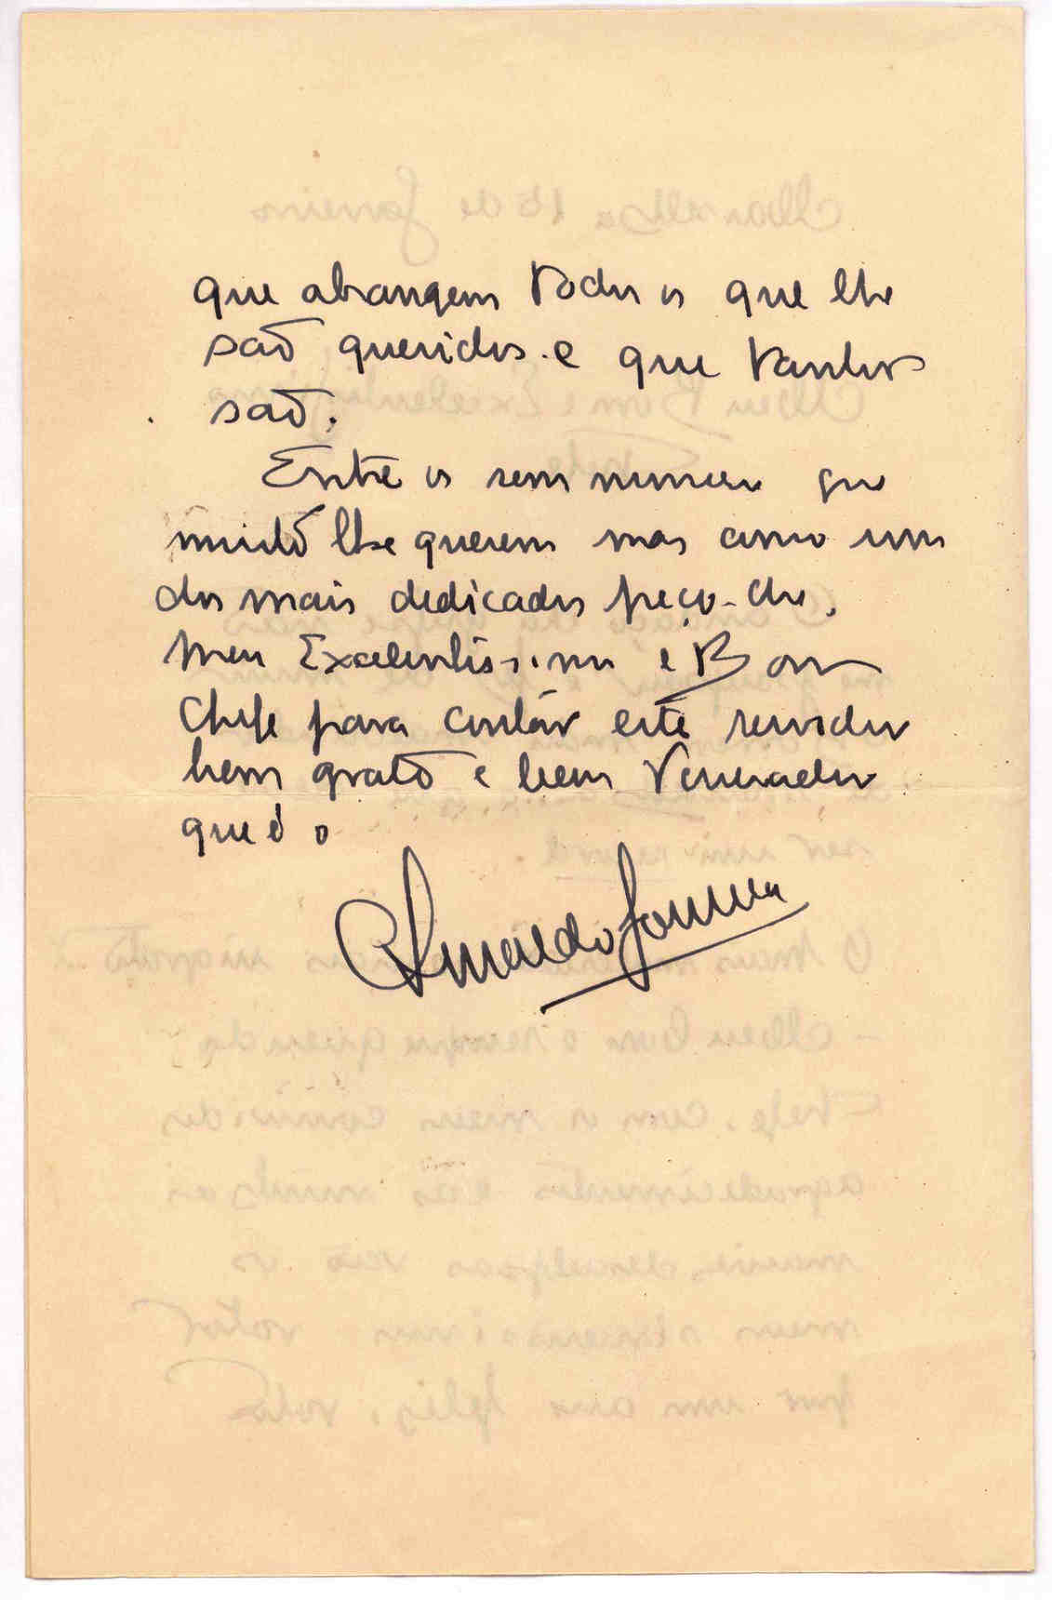 que abrangem todos os que lhe
são queridos e que tantos
são.
Entre os sem numero que
muito lhe querem mas como um
dos mais dedicados peço-lhe,
Meu Excelentissimo e Bom
Chefe para contar este servidor
bem grato e bem Venerador
que é o
Arnaldo